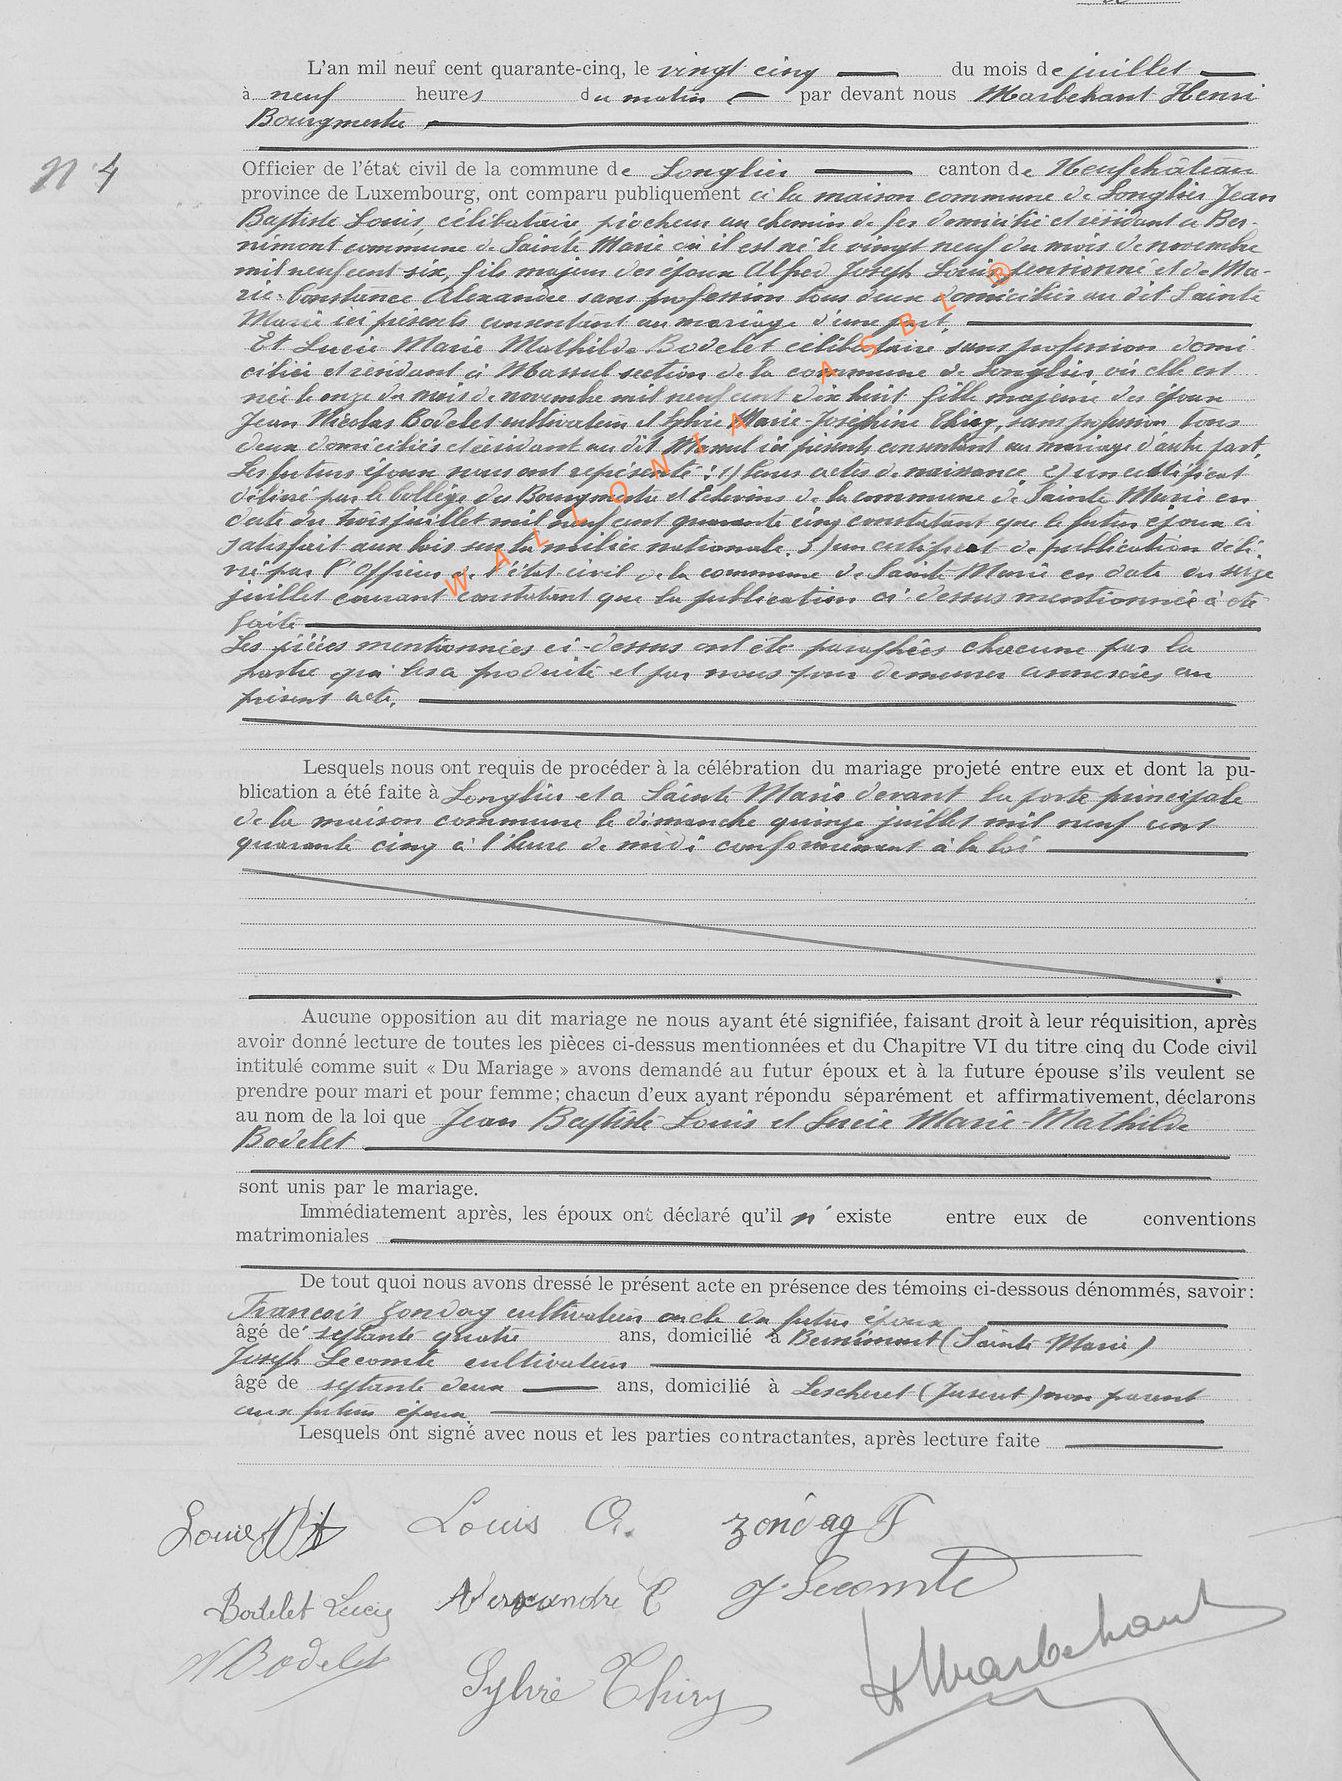 L'an mil neuf cent quarante-cinq, le vingt cinq du mois de juillet
à neuf heures du matin par devant nous Marbehant Henri
Bourgmestre
N° 4
Officier de l'état civil de la commune de Longlier canton de Neufchâteau
province de Luxembourg, ont comparu publiquement à la maison commune de Longlier Jean
Baptiste Louis, célibataire, piocheur au chemin de fer domicilié et résidant à Ber-
nimont commune de Sainte Marie où il est né le vingt neuf du mois de novembre
mil neuf cent six, fils majeur des époux Alfred Joseph Louis pensionné et de Ma-
rie-Constance Alexandre sans profession tous deux domiciliés au dit Sainte
Marie ici présents consentant au mariage d'une part.
Et Lucie Marie Mathilde Bodelet célibataire sans profession domi
ciliée et résidant à Massul section de la commune de Longlier où elle est
née le onze du mois de novembre mil neuf cent dix huit fille majeure des époux
Jean Nicolas Bodelet cultivateur et Sylvie Marie-Joséphine Thiry, sans profession tous
deux domiciliés et résidant au dit Massul ici présents consentant au mariage d'autre part.
Les futurs époux nous ont représenté : 1) leurs actes de naissance. 2) un certificat
délivré par le Collège des Bourgmestre et Echevins de la commune de Sainte Marie en
date du trois juillet mil neuf cent quarante cinq constatant que le futur époux a
satisfait aux lois sur la milice nationale. 3) un certificat de publication déli-
vré par l'Officier de l'état civil de la commune de Sainte Marie en date du seize
juillet courant constatant que la publication ci-dessus mentionnée a été
faite
Les pièces mentionnées ci-dessus ont été paraphées chacune par la
partie qui les a produite et par nous pour demeurer annexées au
présent acte.
WALLONIA ASBL ®
Lesquels nous ont requis de procéder à la célébration du mariage projeté entre eux et dont la pu-
blication a été faite à Longlier et à Sainte Marie devant la porte principale
de la maison commune le dimanche quinze juillet mil neuf cent
quarante cinq à l'heure de midi conformément à la loi
Aucune opposition au dit mariage ne nous ayant été signifiée, faisant droit à leur réquisition, après
avoir donné lecture de toutes les pièces ci-dessus mentionnées et du Chapitre VI du titre cinq du Code civil
intitulé comme suit « Du Mariage » avons demandé au futur époux et à la future épouse s'ils veulent se
prendre pour mari et pour femme; chacun d'eux ayant répondu séparément et affirmativement, déclarons
au nom de la loi que Jean Baptiste Louis et Lucie Marie-Mathilde
Bodelet
sont unis par le mariage.
Immédiatement après, les époux ont déclaré qu'il n'existe entre eux de conventions
matrimoniales
De tout quoi nous avons dressé le présent acte en présence des témoins ci-dessous dénommés, savoir:
François Zondag cultivateur oncle du futur époux
âgé de septante quatre ans, domicilié à Bernimont (Sainte Marie)
Joseph Lecomte cultivateur
âgé de septante deux ans, domicilié à Lescheret (Juseret) non parent
aux futurs époux
Lesquels ont signé avec nous et les parties contractantes, après lecture faite
Louis JBt Louis A. Zondag F
Bodelet Lucie Alexandre C J. Lecomte
N Bodelet Sylvie Thiry H Marbehant